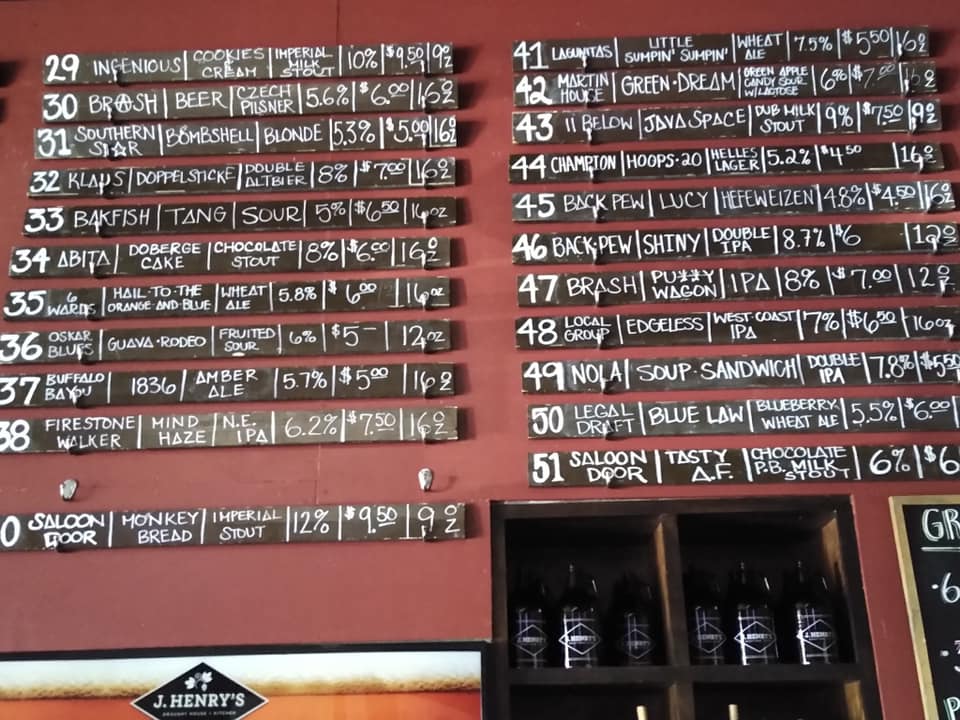 29 INGENIOUS COOKIES CREAM IMPERIAL MILK STOUT 10% $9.50 9oz
30 BRASH BEER CZECH PILSNER 5.6% $6.00 16oz
31 SOUTHERN STAR BOMBSHELL BLONDE 5.3% $5.00 16oz
32 KLAUS DOPPELSTICKE DOUBLE ALTBIER 8% $7.00 16oz
33 BAKFISH TANG SOUR 5% $6.50 16oz
34 ABITA DOBERGE CAKE CHOCOLATE STOUT 8% $6.00 16oz
35 6 WARDS HAIL·TO·THE ORANGE·AND·BLUE WHEAT ALE 5.8% $6.00 16oz
36 OSKAR BLUES GUAVA·RODEO FRUITED SOUR 6% $5- 12oz
37 BUFFALO BAYOU 1836 AMBER ALE 5.7% $5.00 16oz
38 FIRESTONE WALKER MIND HAZE N.E. IPA 6.2% $7.50 16oz
0 SALOON DOOR MONKEY BREAD IMPERIAL STOUT 12% $9.50 9oz
41 LAGUNITAS LITTLE SUMPIN' SUMPIN' WHEAT ALE 7.5% $5.50 16oz
42 MARTIN HOUSE GREEN·DREAM GREEN APPLE CANDY SOUR W/LACTOSE 6% $7.00
43 11 BELOW JAVA SPACE DUB MILK STOUT 9% $7.50 9oz
44 CHAMPION HOOPS·20 HELLES LAGER 5.2% $4.50 16oz
45 BACK PEW LUCY HEFEWEIZEN 4.8% $4.50 16oz
46 BACK·PEW SHINY DOUBLE IPA 8.7% $6 12oz
47 BRASH PU**Y WAGON IPA 8% $7.00 12oz
48 LOCAL GROUP EDGELESS WEST·COAST IPA 7% $6.50 16oz
49 NOLA SOUP·SANDWICH DOUBLE IPA 7.8% $5.50
50 LEGAL DRAFT BLUE LAW BLUEBERRY WHEAT ALE 5.5% $6.00
51 SALOON DOOR TASTY A.F. CHOCOLATE P.B. MILK STOUT 6% $6
J. HENRY'S
DRAUGHT HOUSE + KITCHEN
J.HENRY'S
J.HENRY'S
J.HENRY'S
J.HENRY'S
J.HENRY'S
J.HENRY'S
GR
·6